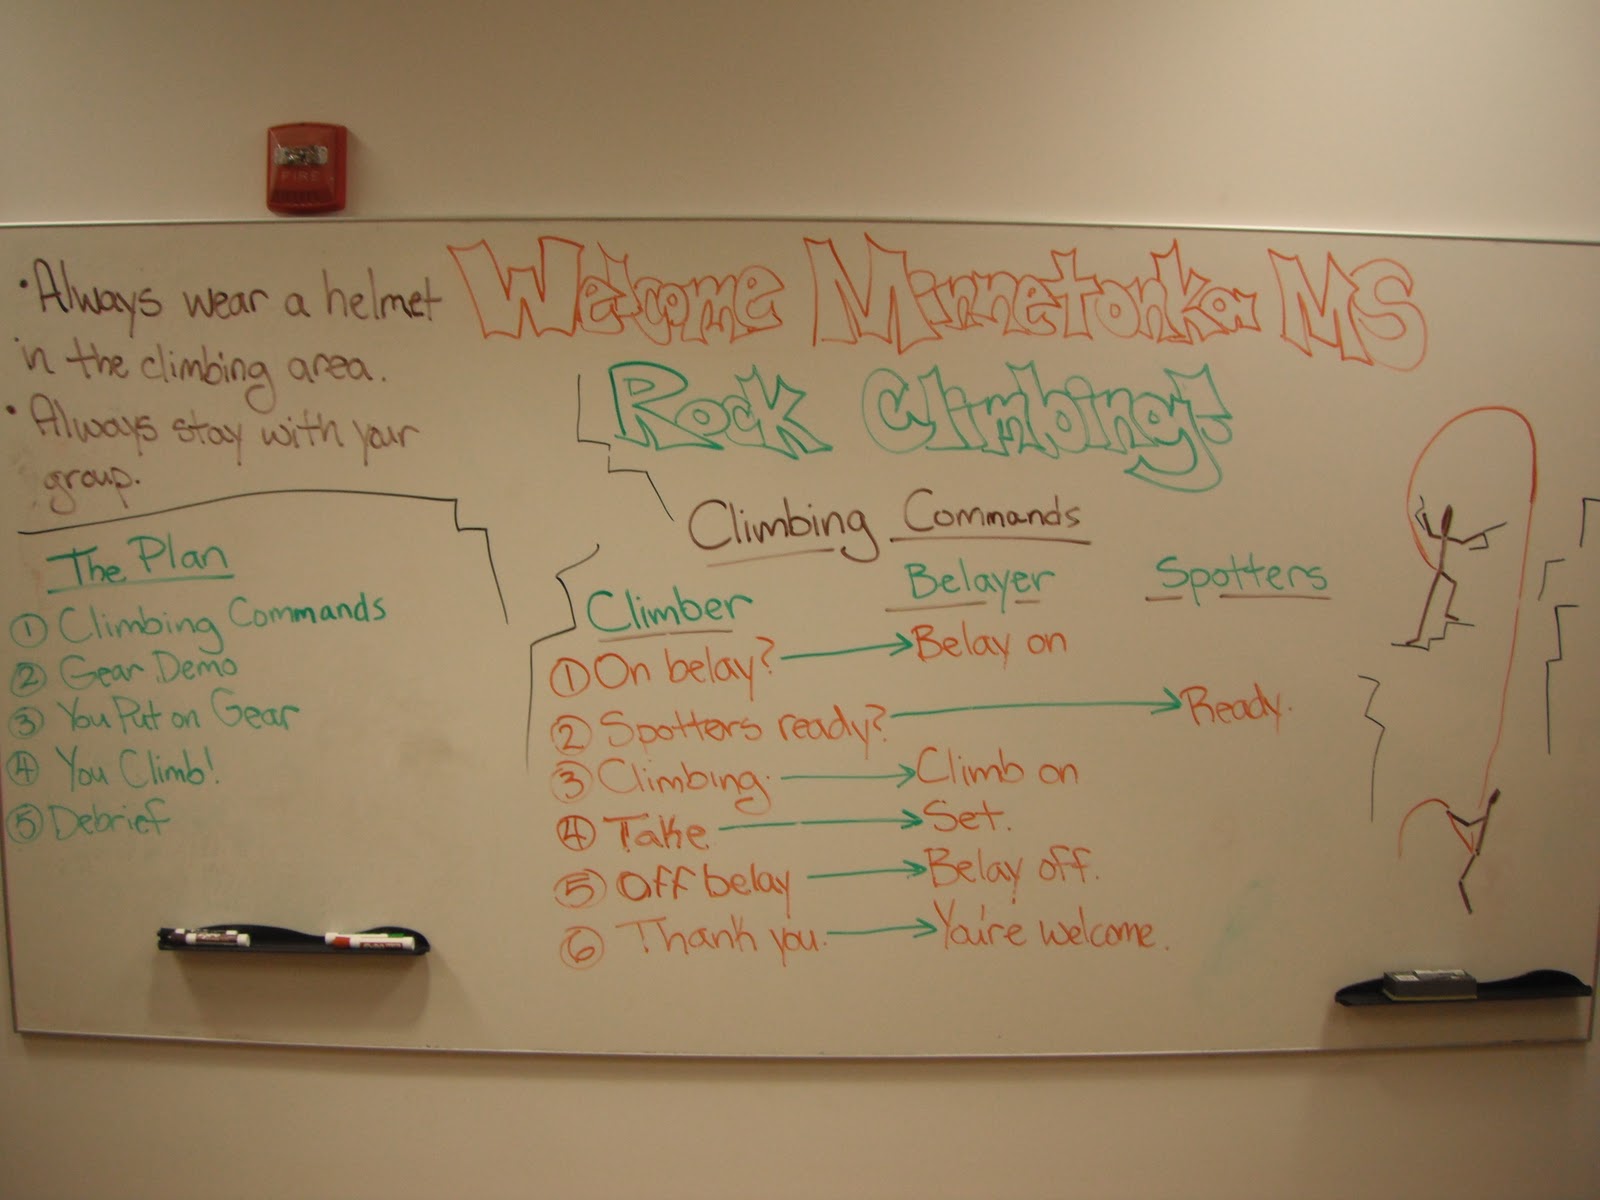 FIRE
Welcome Minnetonka MS
Rock Climbing!
• Always wear a helmet
in the climbing area.
• Always stay with your
group.
The Plan
① Climbing Commands
② Gear Demo
③ You Put on Gear
④ You Climb!
⑤ Debrief
Climbing Commands
Climber Belayer Spotters
① On belay? → Belay on
② Spotters ready? → Ready.
③ Climbing. → Climb on
④ Take. → Set.
⑤ Off belay → Belay off.
⑥ Thank you. → You're welcome.